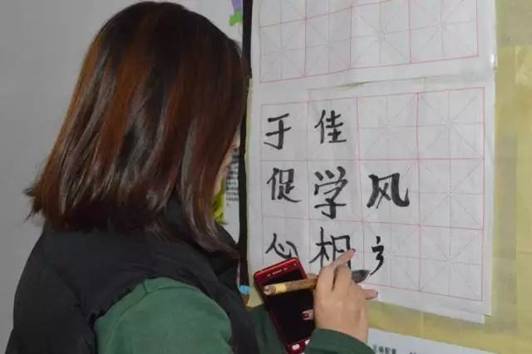 于佳
促学风
心相